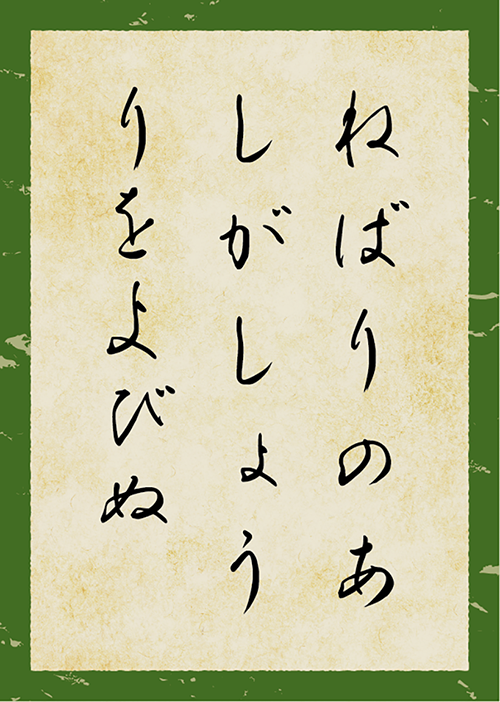 ねばりのあ
しがしょう
りをよびぬ